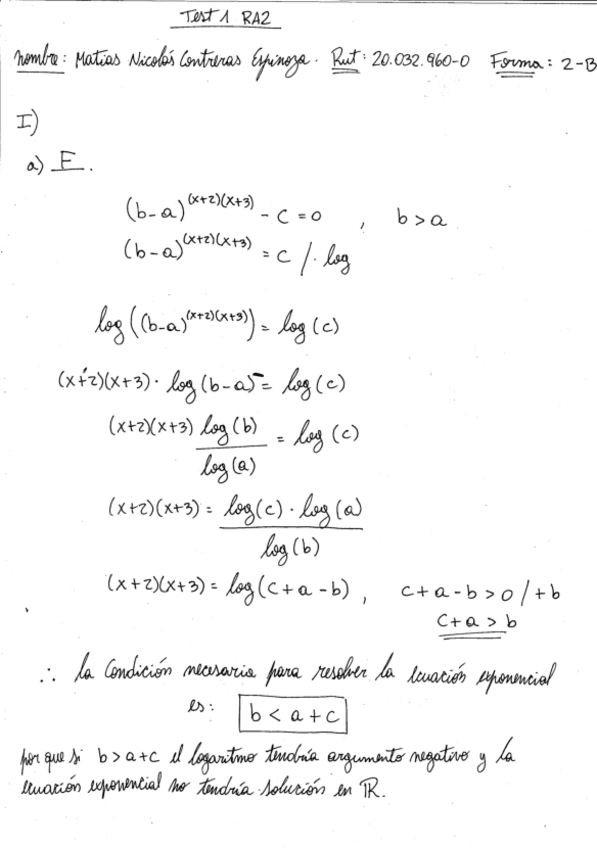 Test 1 RA2
Nombre: Matías Nicolás Contreras Espinoza. Rut: 20.032.960-0 Forma: 2-B
I)
a) F.
(b-a)^(x+2)(x+3) - c = 0 , b > a
(b-a)^(x+2)(x+3) = c /· log
log((b-a)^(x+2)(x+3)) = log(c)
(x+2)(x+3) · log(b-a) = log(c)
(x+2)(x+3) log(b)/log(a) = log(c)
(x+2)(x+3) = log(c) · log(a)/log(b)
(x+2)(x+3) = log(c+a-b) , c+a-b>0 /+b
c+a > b
∴ la condición necesaria para resolver la ecuación exponencial
es: b < a + c
porque si b > a+c el logaritmo tendría argumento negativo y la
ecuación exponencial no tendría solución en ℝ.